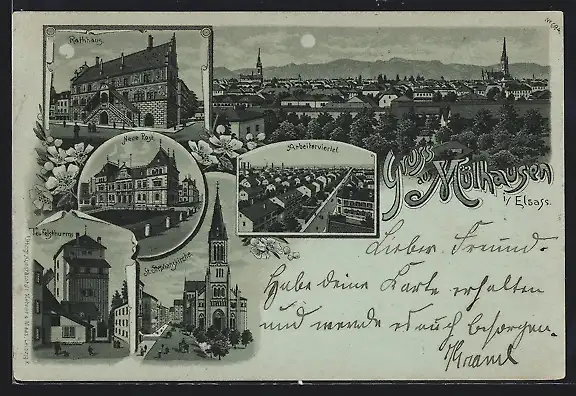 Rathhaus
No 692
Neue Post
Arbeiterviertel
Gruss
aus
Mülhausen
i/ Elsass.
Teufelsthurm
St. Stephanskirche
Lieber Freund.
Habe deine Karte erhalten
und werde es auch besorgen.